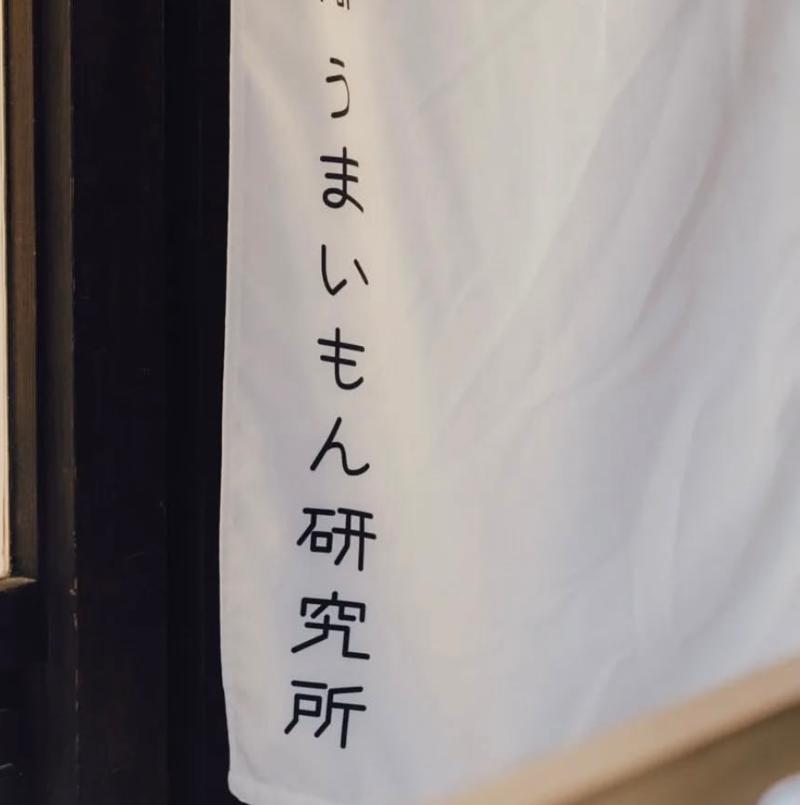 うまいもん研究所